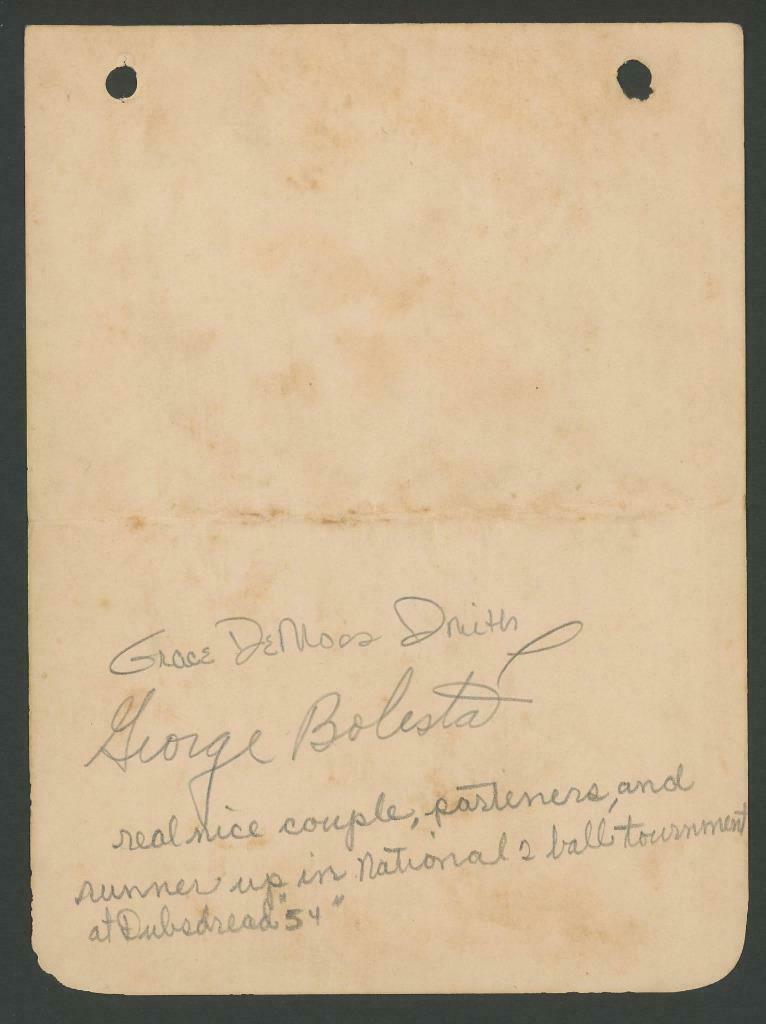 Grace DeMoss Smith
George Bolesta
real nice couple, parteners, and
runner up in National 2 ball tournment
at Dubsdread "54"